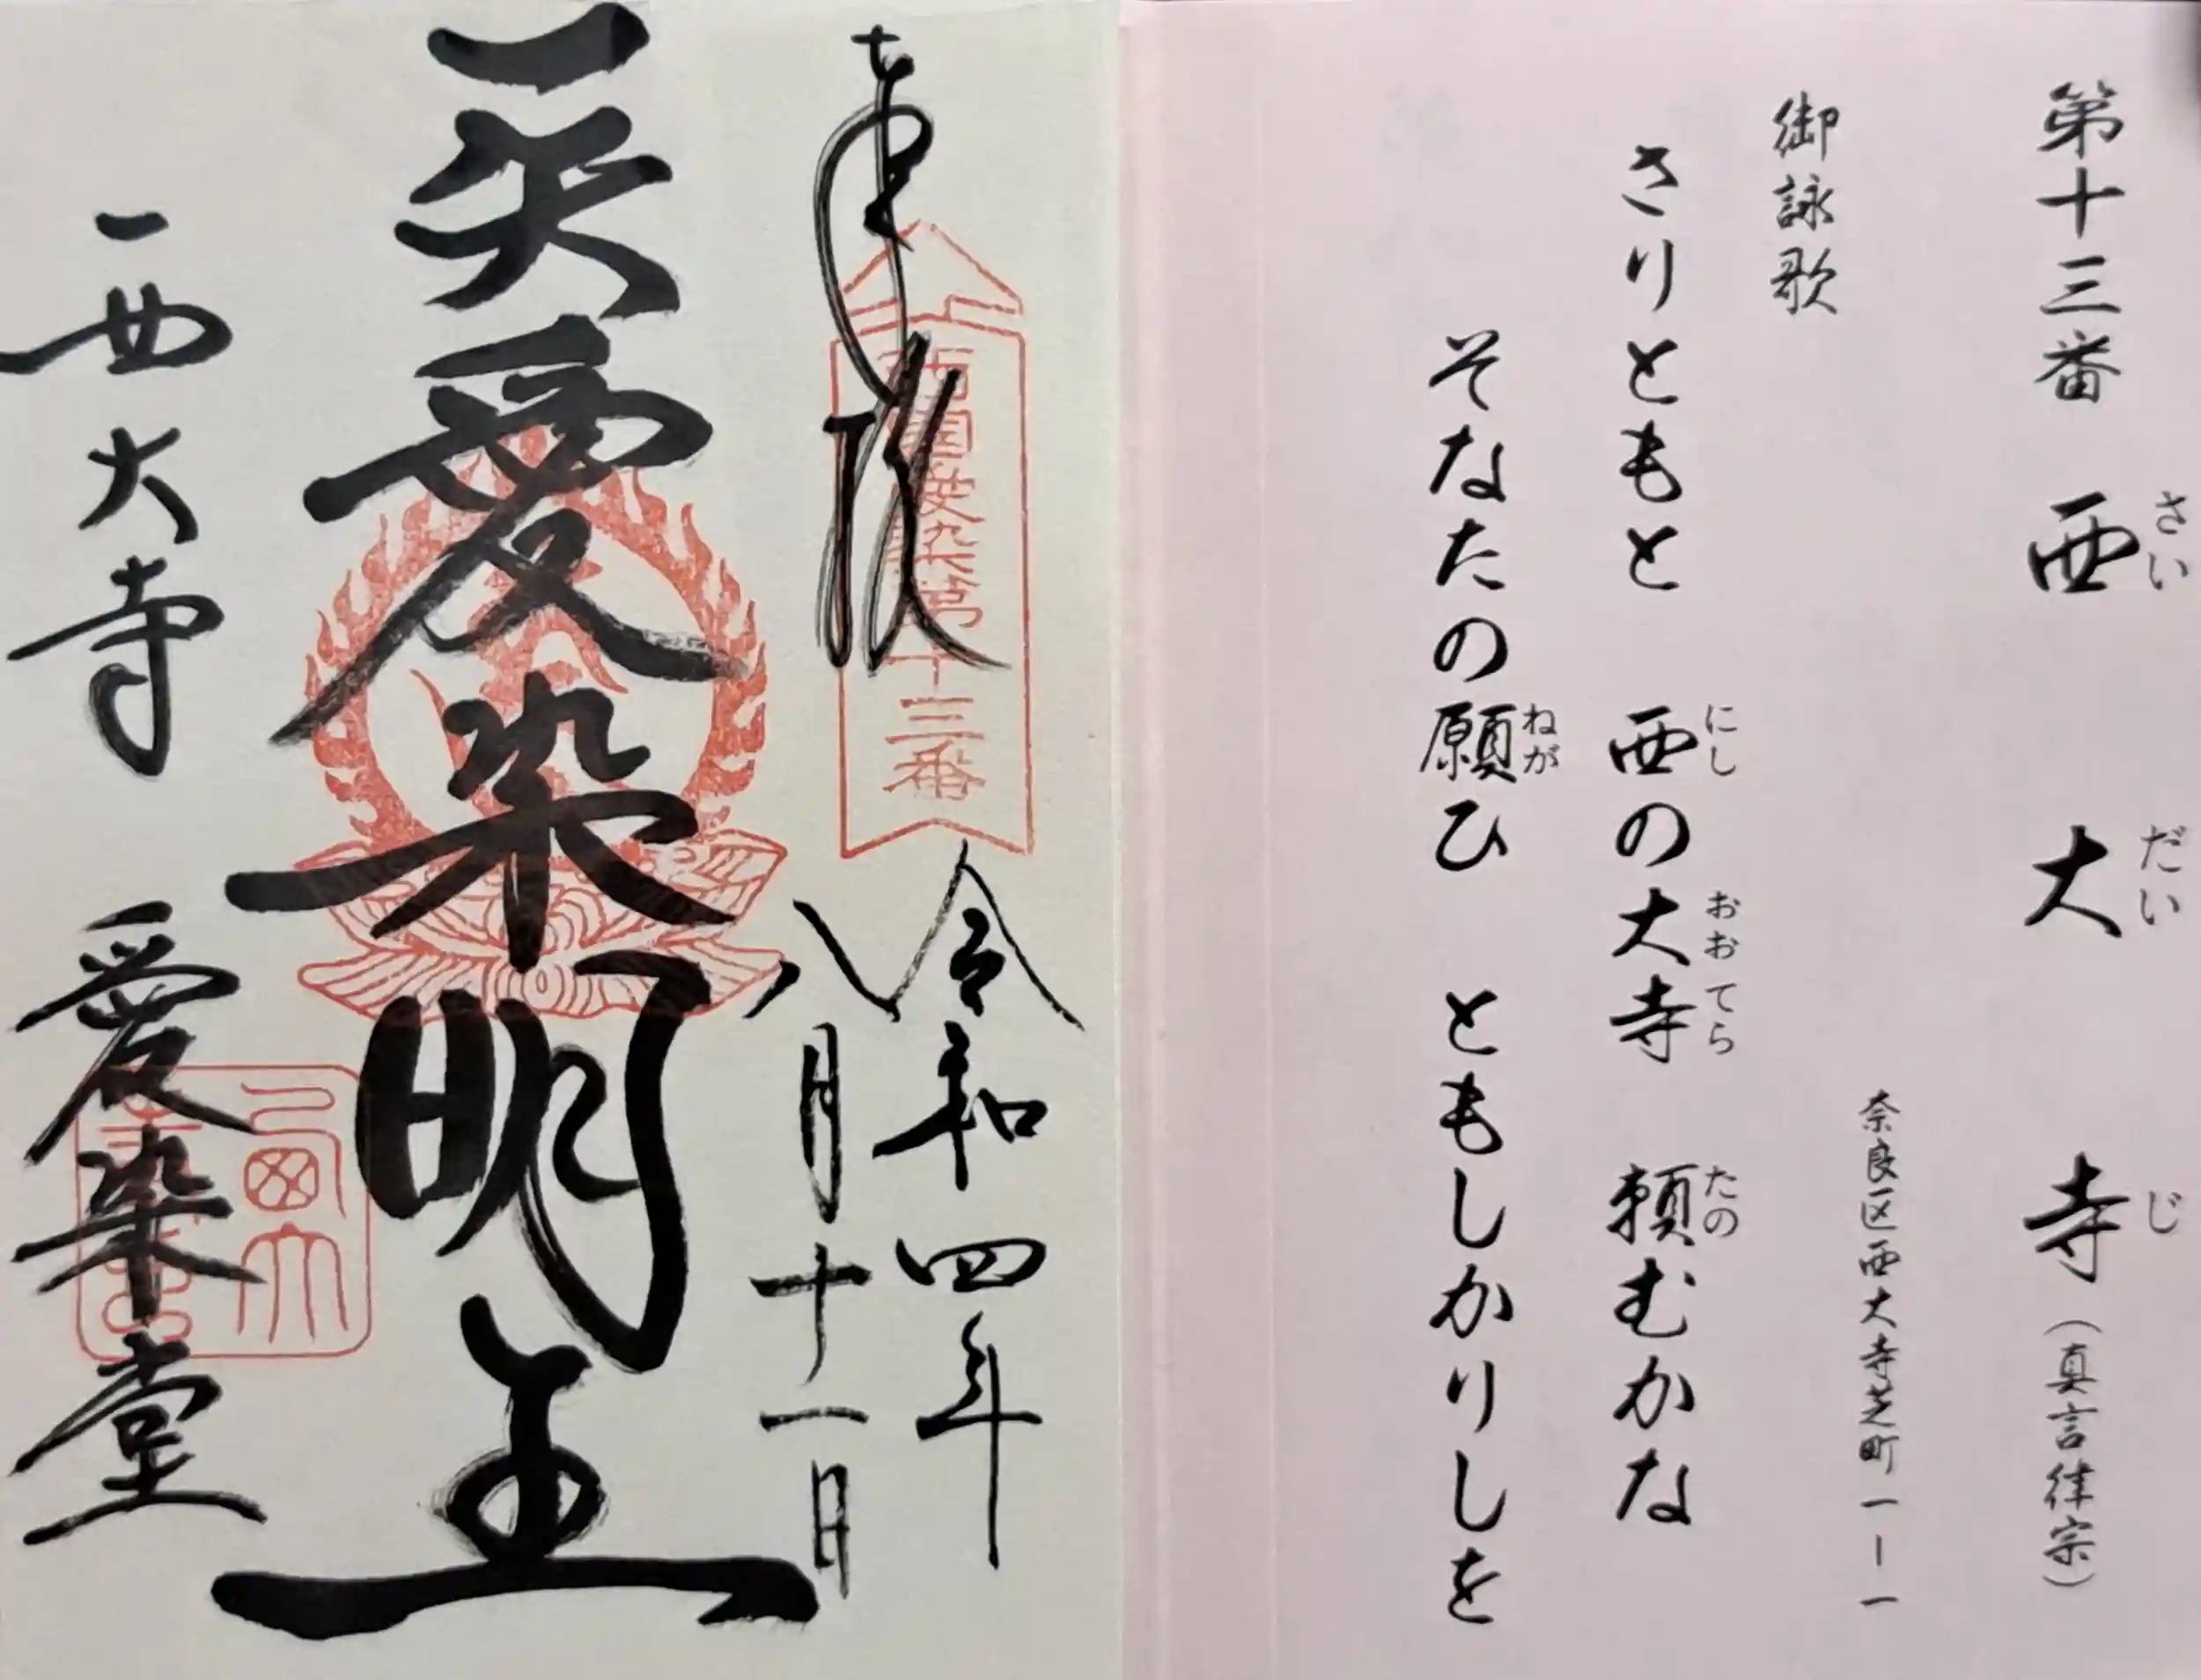 第十三番 西大寺(真言律宗)
さい だい じ
奈良区西大寺芝町一ー一
御詠歌
さりともと 西の大寺 頼むかな
にし おおてら たの
そなたの願ひ ともしかりしを
ねが
奉拝
西国愛染第十三番
令和四年
八月十一日
愛染明王
西大寺 愛染堂